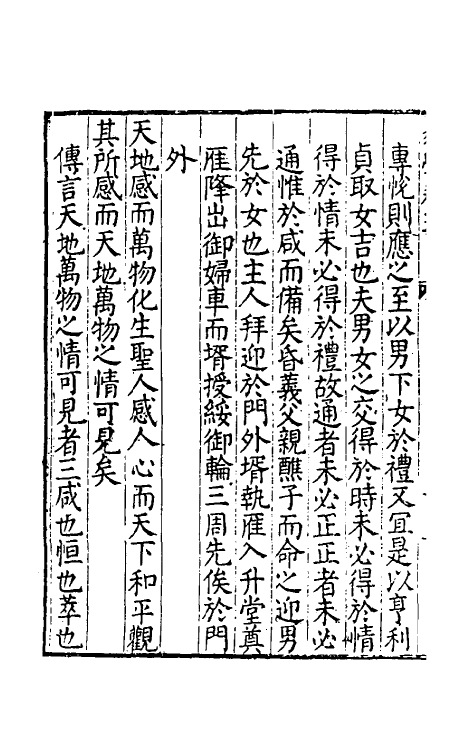 專恱則應之至以男下女於禮又冝是以亨利
貞取女吉也夫男女之交得於時未必得於情
得於情未必得於禮故通者未必正正者未必
通惟於咸而備矣昏義父親醮子而命之迎男
先於女也主人拜迎於門外壻執雁入升堂奠
雁降出御婦車而壻授綏御輪三周先俟於門
外
天地感而萬物化生聖人感人心而天下和平觀
其所感而天地萬物之情可見矣
傳言天地萬物之情可見者三咸也恒也萃也